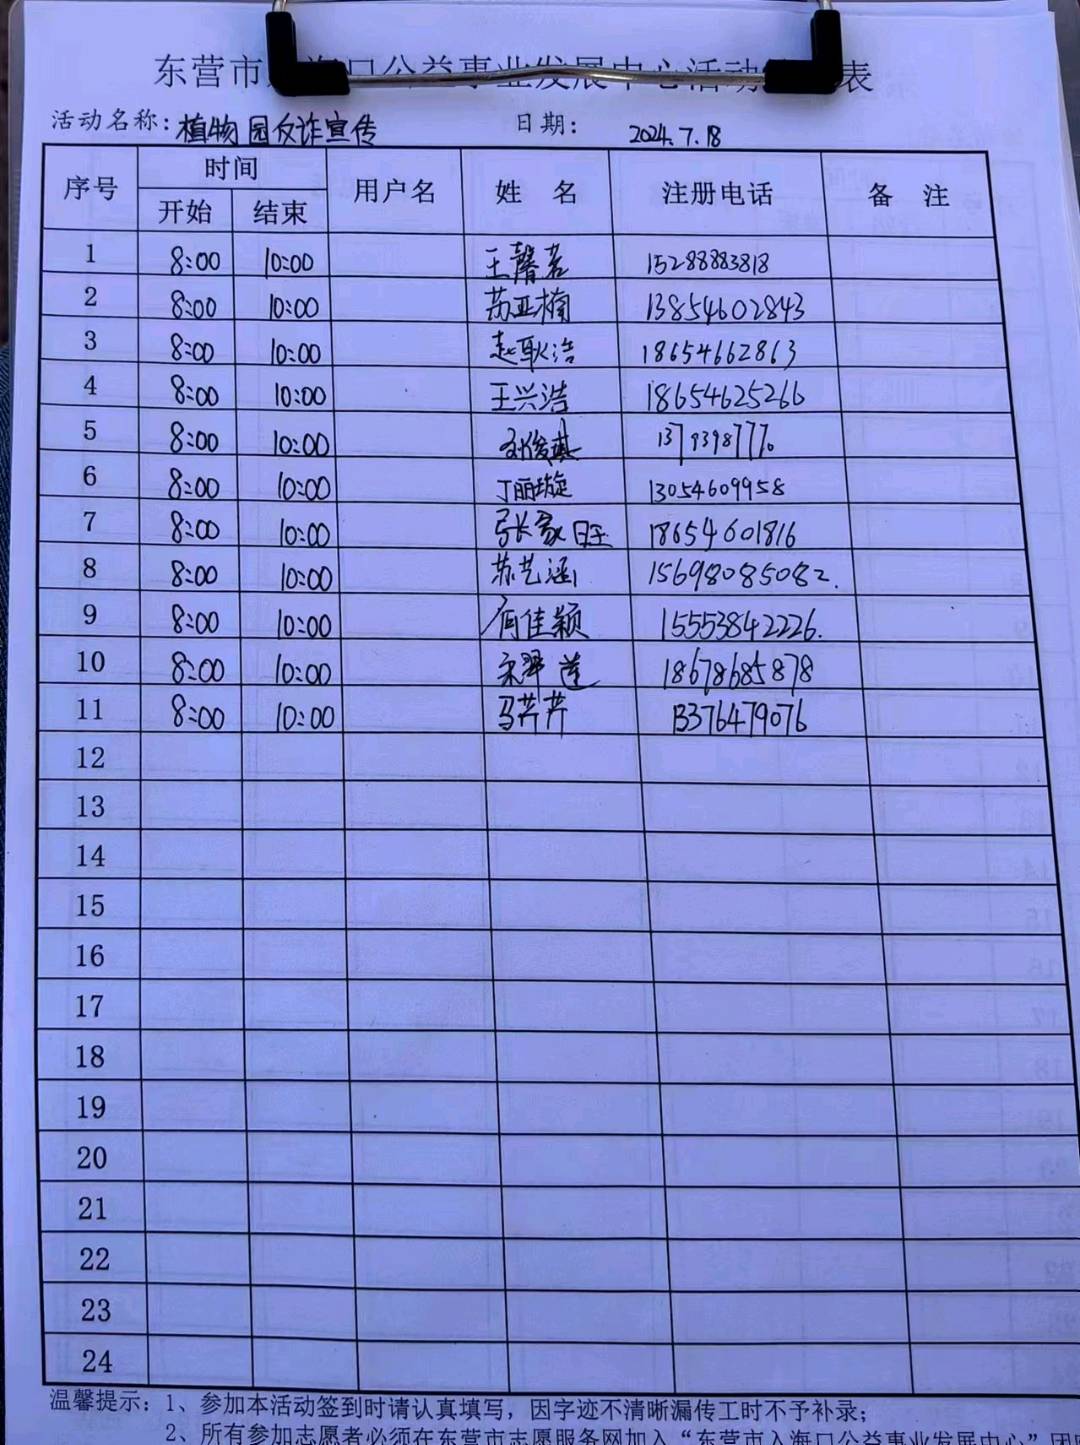 东营市 海口公益事业发展中心活动 表
活动名称：植物园反诈宣传 日期： 2024.7.18
序号 时间 用户名 姓 名 注册电话 备 注
开始 结束
1 8:00 10:00 王馨若 15288883818
2 8:00 10:00 苏亚楠 13854602843
3 8:00 10:00 赵耿浩 18654662863
4 8:00 10:00 王兴浩 18654625266
5 8:00 10:00 刘俊其
6 8:00 10:00 丁丽璇 13054609958
7 8:00 10:00 张家旺 18654601816
8 8:00 10:00 苏艺涵 15698085082.
9 8:00 10:00 周佳颖 15553842226.
10 8:00 10:00 宋翠莲 18678685878
11 8:00 10:00 马芹芹 13376479076
12
13
14
15
16
17
18
19
20
21
22
23
24
温馨提示：1、参加本活动签到时请认真填写，因字迹不清晰漏传工时不予补录；
2、所有参加志愿者必须在东营市志愿服务网加入“东营市入海口公益事业发展中心”团